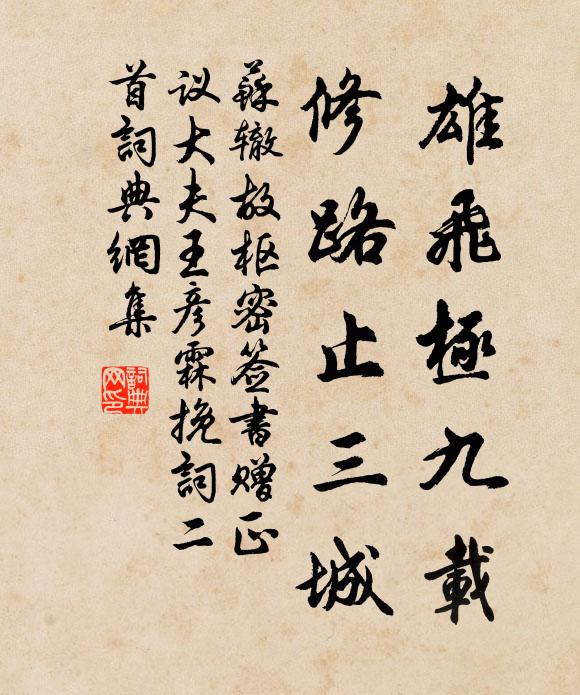 雄飛極九載
修路止三城
蘇辙故枢密签書赠正
议大夫王彦霖挽詞二
首詞典網集
詞典
网印